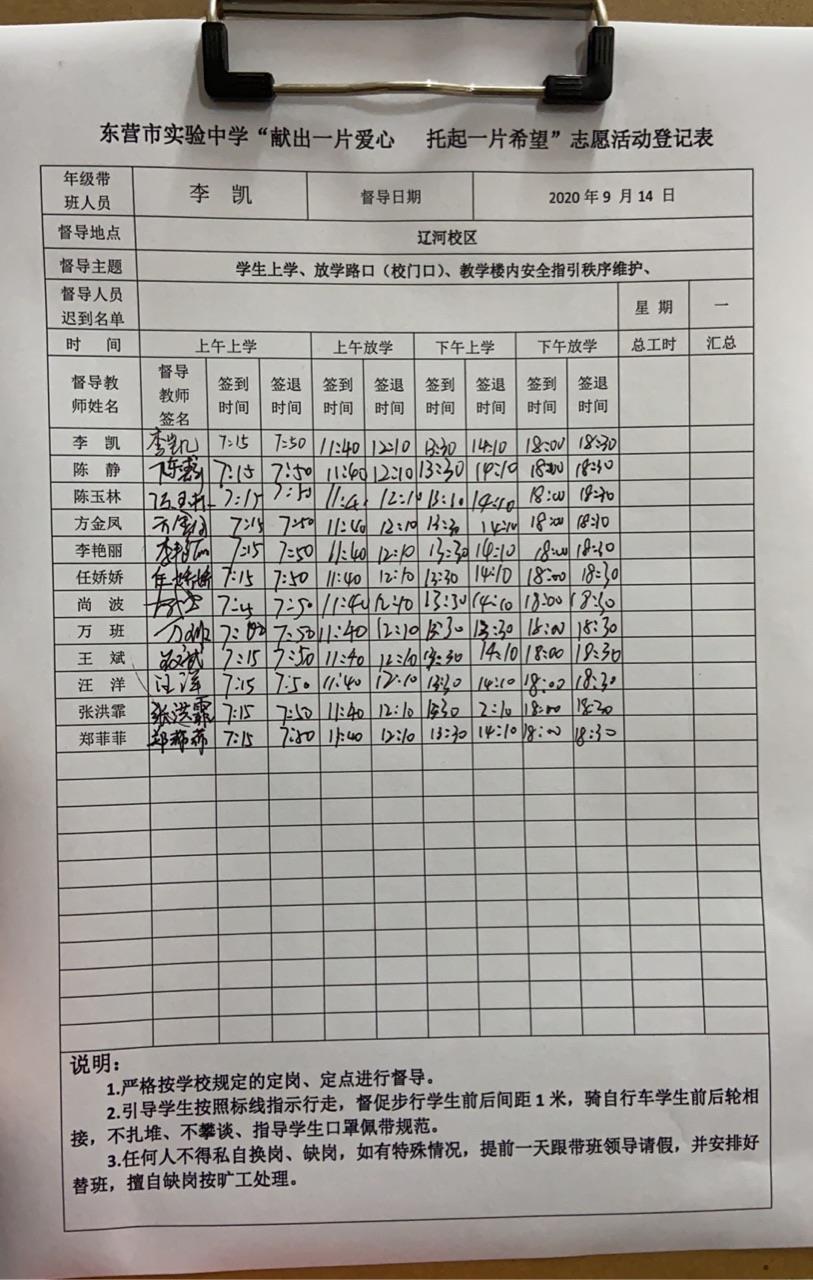 东营市实验中学“献出一片爱心 托起一片希望”志愿活动登记表
年级带班人员 李 凯 督导日期 2020年9月14日
督导地点 辽河校区
督导主题 学生上学、放学路口（校门口）、教学楼内安全指引秩序维护、
督导人员迟到名单 星 期 一
时 间 上午上学 上午放学 下午上学 下午放学 总工时 汇总
督导教师姓名 督导教师签名 签到时间 签退时间 签到时间 签退时间 签到时间 签退时间 签到时间 签退时间
李 凯 李凯 7:15 7:50 11:40 12:10 13:30 14:10 18:00 18:30
陈 静 陈静 7:15 7:50 11:40 12:10 13:30 14:10 18:00 18:30
陈玉林 陈玉林 7:15 7:50 12:10 14:10 18:00 18:30
方金凤 方金凤 7:15 7:50 11:40 12:10 13:30 14:10 18:00 18:30
李艳丽 李艳丽 7:15 7:50 11:40 12:10 13:30 14:10 18:00 18:30
任娇娇 任娇娇 7:15 7:50 11:40 12:10 13:30 14:10 18:00 18:30
尚 波 7:50 11:40 12:10 13:30 14:10 18:00 18:30
万 班 万班 7:50 11:40 12:10 13:30 13:30 18:00 18:30
王 斌 7:15 7:50 11:40 12:10 13:30 14:10 18:00 18:30
汪 洋 汪洋 7:15 7:50 11:40 12:10 13:30 14:10 18:00 18:30
张洪霏 张洪霏 7:15 7:50 11:40 12:10 13:30 2:10 18:00 18:30
郑菲菲 郑菲菲 7:15 7:50 11:40 12:10 13:30 14:10 18:00 18:30
说明：
1.严格按学校规定的定岗、定点进行督导。
2.引导学生按照标线指示行走，督促步行学生前后间距1米，骑自行车学生前后轮相
接，不扎堆、不攀谈、指导学生口罩佩带规范。
3.任何人不得私自换岗、缺岗，如有特殊情况，提前一天跟带班领导请假，并安排好
替班，擅自缺岗按旷工处理。